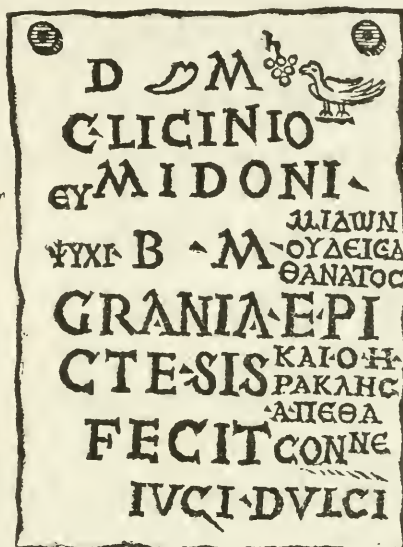 D M
C·LICINIO
ΕΥ MIDONI·
ΜΙΔΩΝ
ΨΥΧΙ· B ·M·ΟΥΔΕΙCΑ
ΘΑΝΑΤΟC
GRANIA·E·PI
CTE·SIS ΚΑΙ·Ο·Η·
ΡΑΚΛΗC
·ΑΠΕΘΑ
FECIT CONNE
IVCI·DVLCI